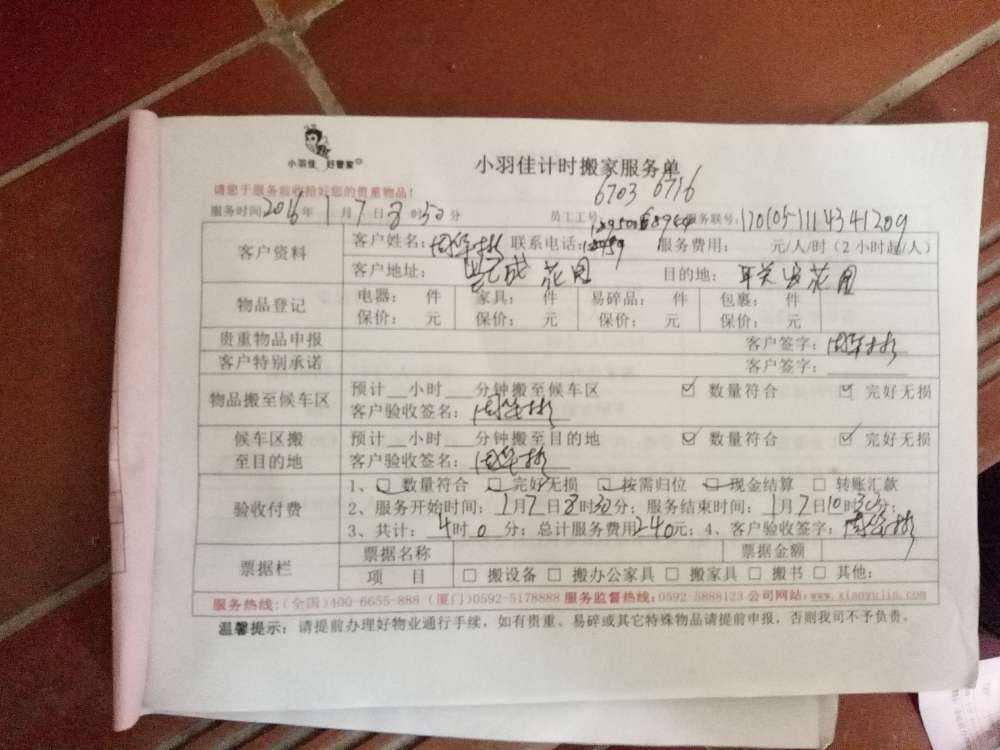 小羽佳 好管家
小羽佳计时搬家服务单
6703 6716
请您于服务前收拾好您的贵重物品!
服务时间 2016年 1月 7日 8时30分 员工工号: 服务联号:
客户资料 客户姓名: 联系电话: 服务费用: 元/人/时(2小时起/人)
客户地址: 花园 目的地: 花园
物品登记 电器: 件 家具: 件 易碎品: 件 包裹: 件
保价: 元 保价: 元 保价: 元 保价: 元
贵重物品申报 客户签字:
客户特别承诺 客户签字:
物品搬至候车区 预计__小时___分钟搬至候车区 ☑ 数量符合 ☑ 完好无损
客户验收签名:
候车区搬至目的地 预计__小时___分钟搬至目的地 ☑ 数量符合 ☑ 完好无损
客户验收签名:
验收付费 1、☑数量符合 ☑完好无损 ☑按需归位 ☑现金结算 □转账汇款
2、服务开始时间:1月7日8时30分;服务结束时间:1月7日10时30分;
3、共计:4时0分;总计服务费用240元;4、客户验收签字:
票据栏 票据名称 票据金额
项 目 □ 搬设备 □ 搬办公家具 □ 搬家具 □ 搬书 □ 其他:
服务热线:(全国)400-6655-888 (厦门)0592-5178888 服务监督热线:0592-5888123 公司网站:www.xiaoyujia.com
温馨提示:请提前办理好物业通行手续,如有贵重、易碎或其它特殊物品请提前申报,否则我司不予负责。